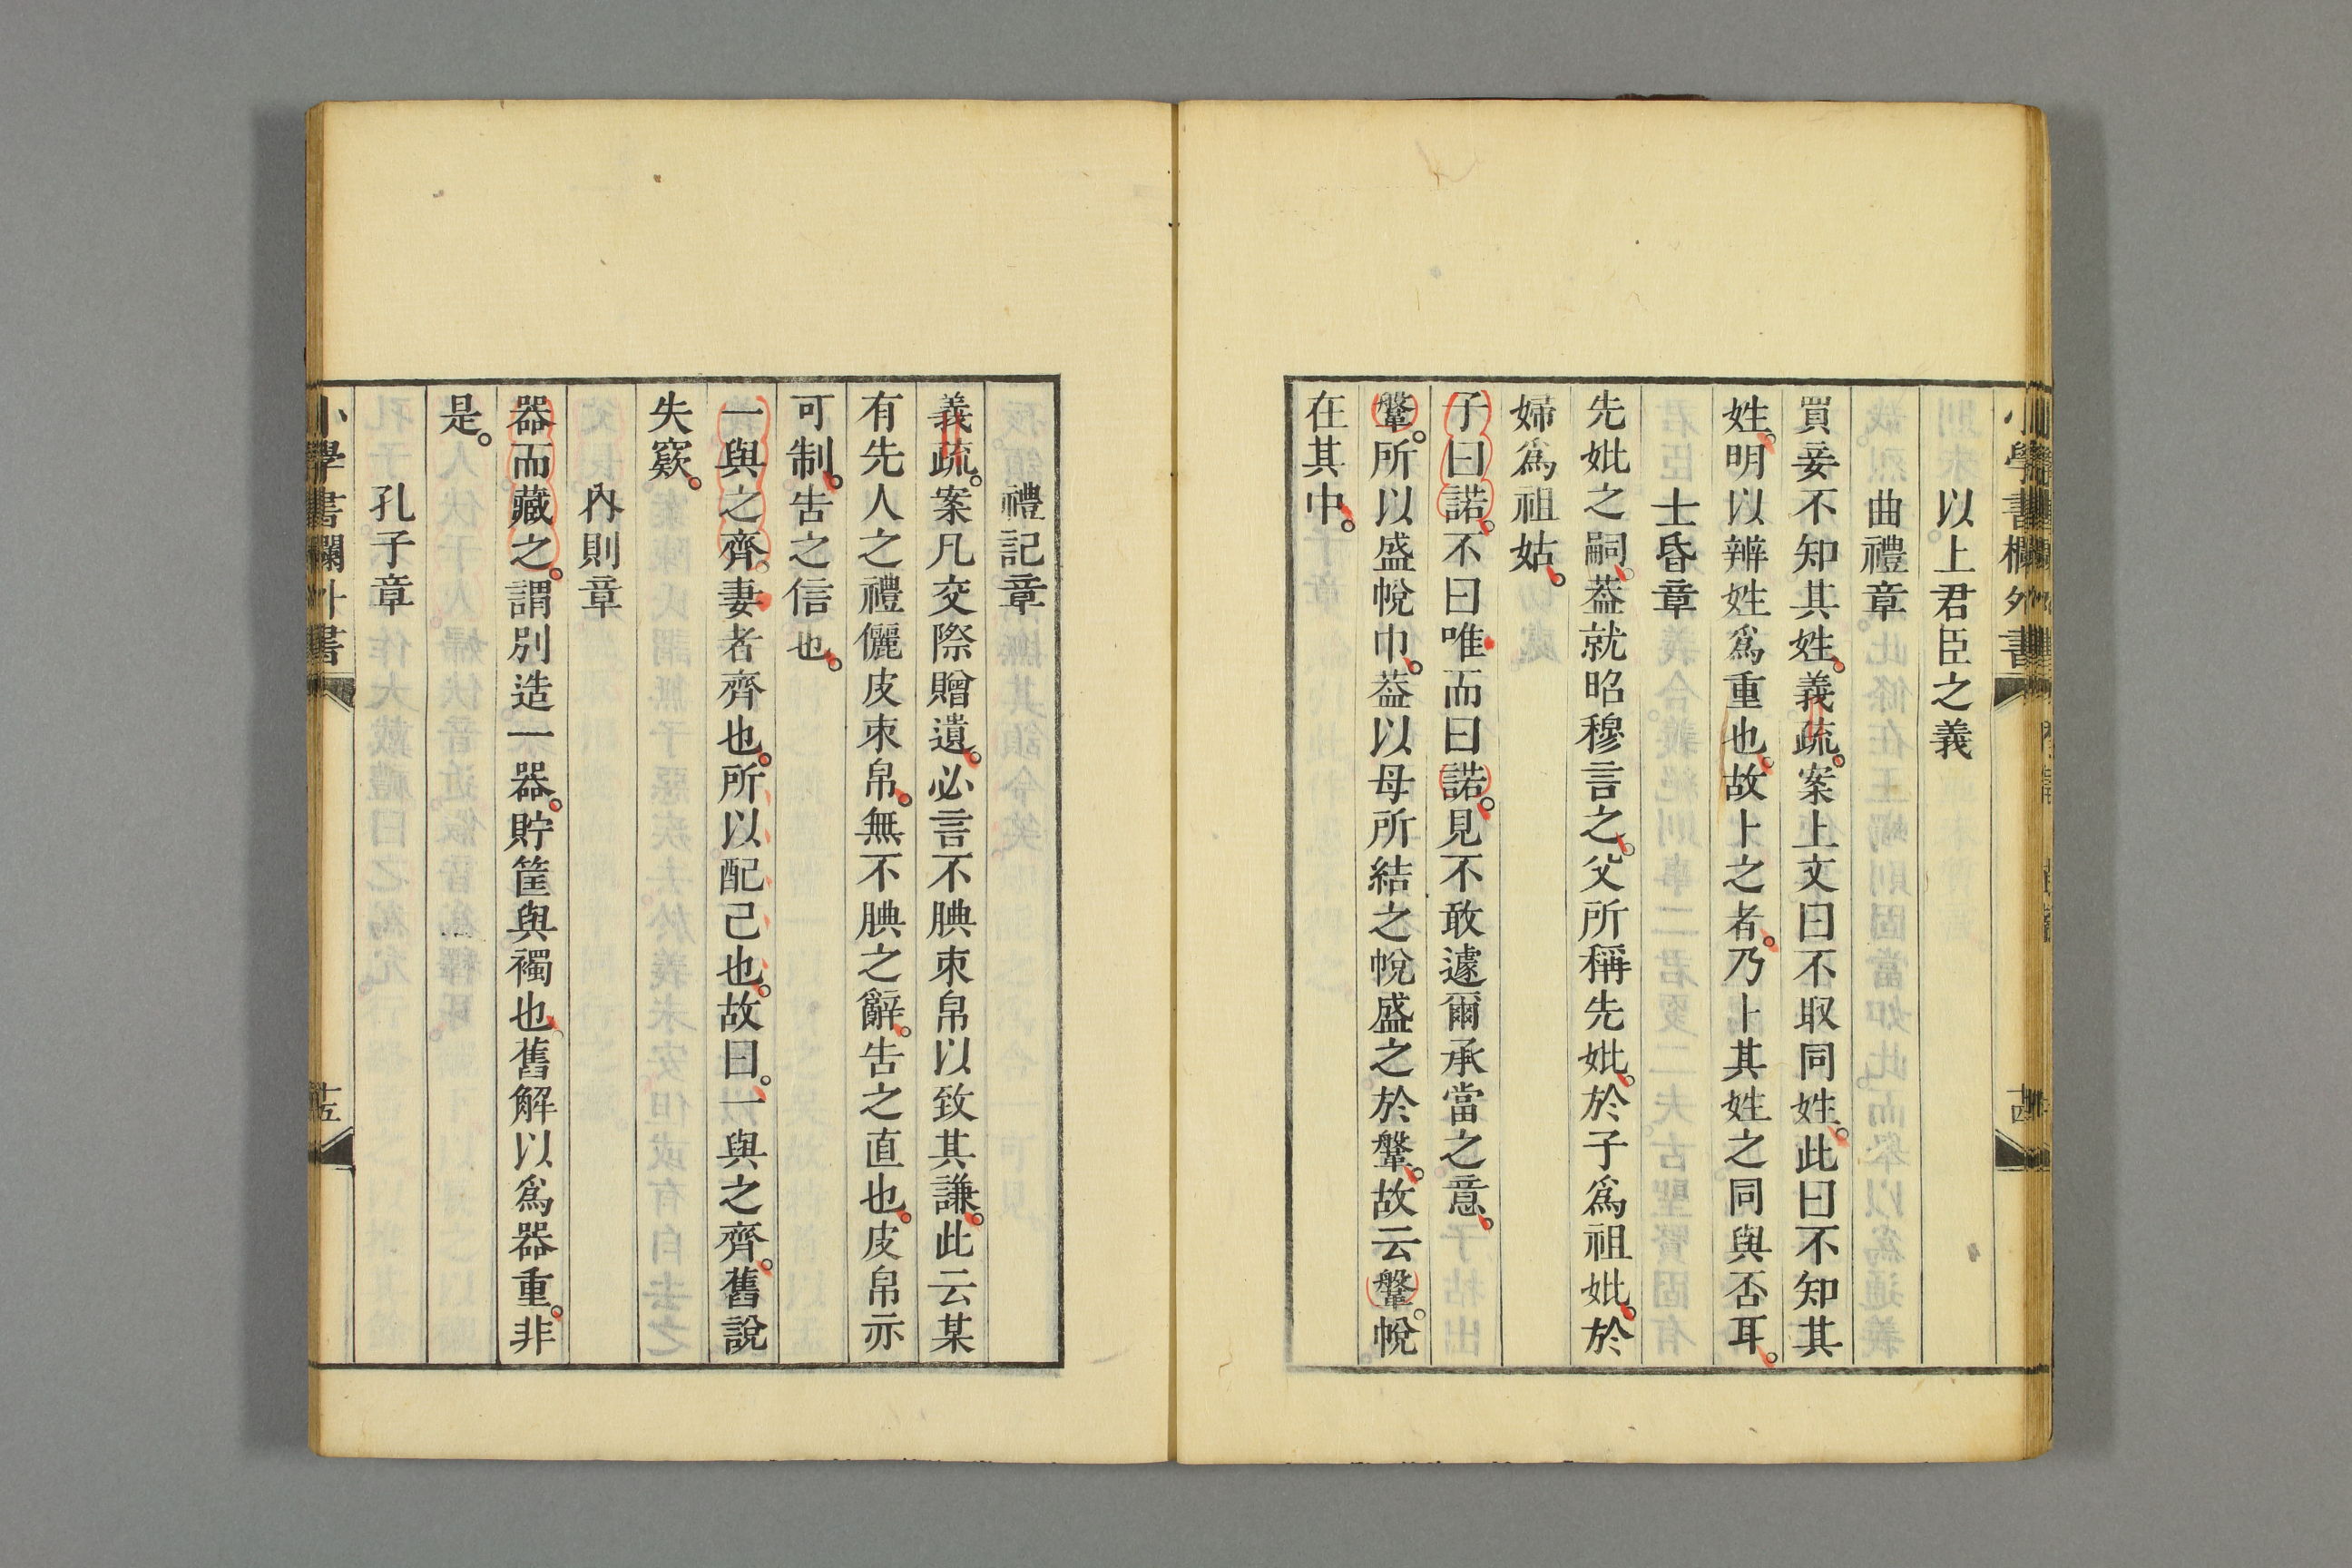 小學書欄外書
十四
以上君臣之義
曲禮章
買妾不知其姓。義疏。案上文曰不取同姓。此曰不知其
姓。明以辨姓爲重也。故卜之者。乃卜其姓之同與否耳。
士昏章
先妣之嗣。蓋就昭穆言之。父所稱先妣。於子爲祖妣。於
婦爲祖姑。
子曰諾。不曰唯而曰諾。見不敢遽爾承當之意。
鞶。所以盛帨巾。蓋以母所結之帨盛之於鞶。故云鞶。帨
在其中。
禮記章
義疏。案凡交際贈遺。必言不腆束帛以致其謙。此云某
有先人之禮儷皮束帛。無不腆之辭。告之直也。皮帛亦
可制。告之信也。
一與之齊。妻者齊也。所以配己也。故曰。一與之齊。舊說
失窾。
內則章
器而藏之。謂別造一器。貯筐與襡也。舊解以爲器重。非
是。
孔子章
小學書欄外書
十五